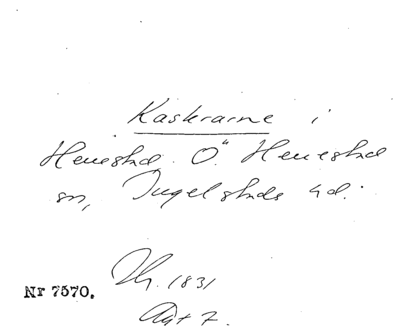 Kaskrarne i
Herrestad. Ö. Herrestad
sn, Ingelstads hd.
Nr 7570.
1831
Akt 7.